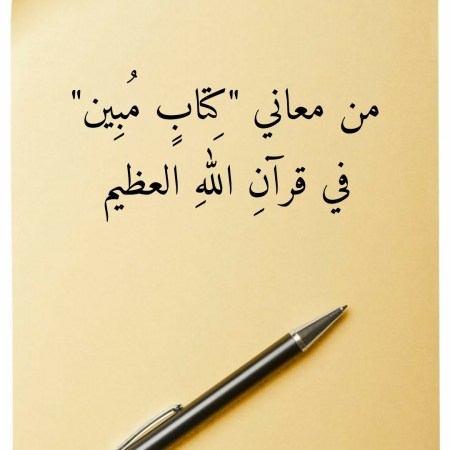 من معاني "كِتابٍ مُبِين"
في قرآنِ اللهِ العظيم